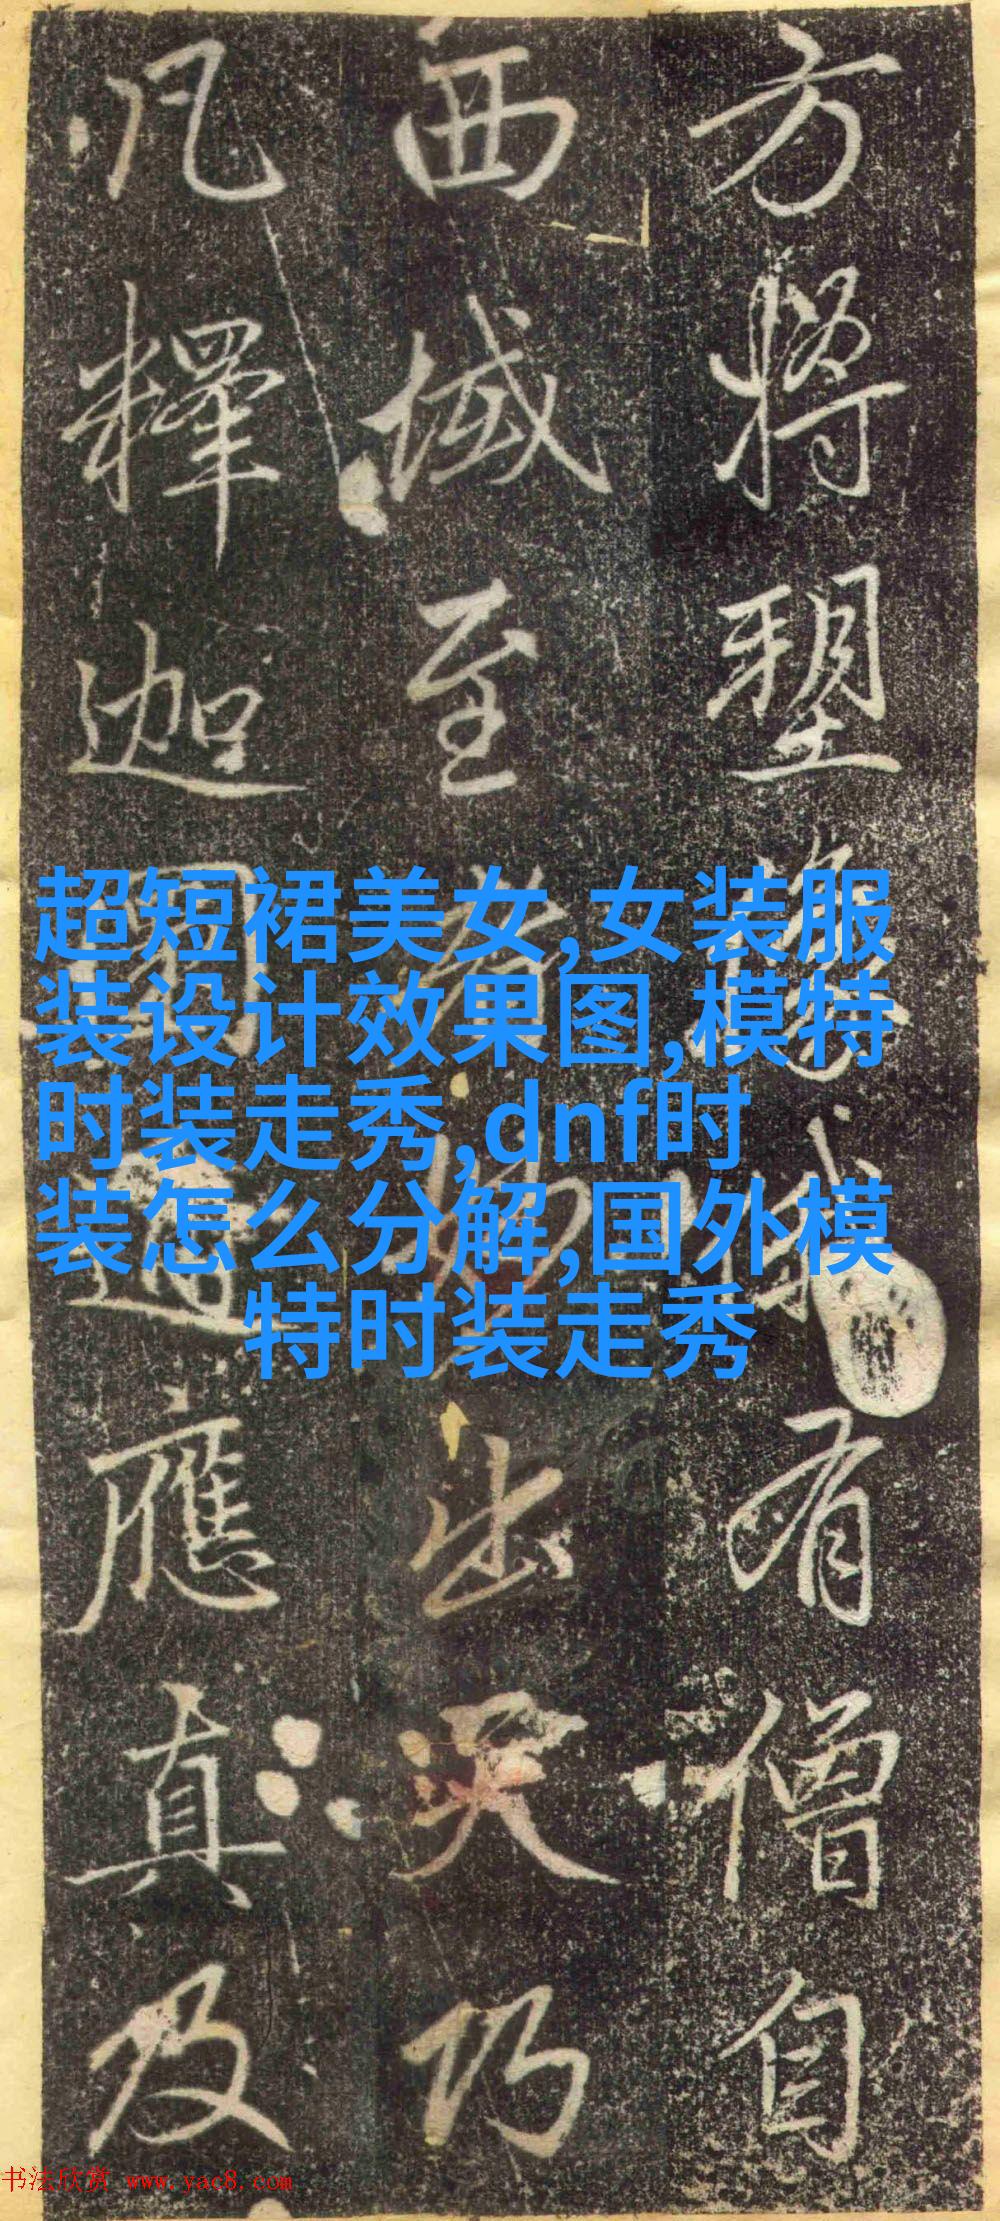 方將塑有僧自
西域至者出乃
凡釋迦應真及
超短裙美女,女装服
装设计效果图,模特
时装走秀,dnf时
装怎么分解,国外模
特时装走秀
书法欣赏 www.yac8.com